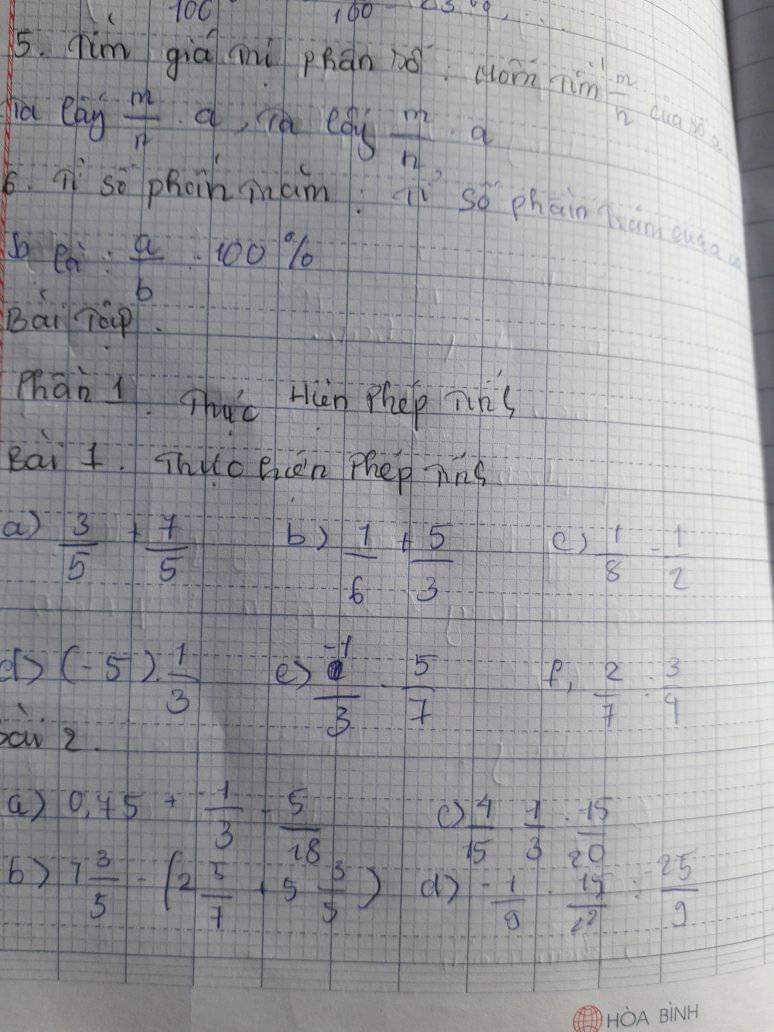 100 100
5. Tìm giá trị phân số : Muốn tìm m/n của số a
ta lấy m/n . a, ta lấy m/n . a
6. Tỉ số phần trăm : Tỉ số phần trăm của a và
b là : a/b . 100%
Bài Tập.
Phần 1. Thực Hiện Phép Tính
Bài 1. Thực hiện Phép Tính
a) 3/5 + 7/5 b) 1/6 + 5/3 c) 1/8 - 1/2
d) (-5) . 1/3 e) -1/3 . 5/7 f, 2/7 : 3/4
Bài 2.
a) 0,45 + 1/3 - 5/18 c) 4/15 . 1/3 . 15/20
b) 7 3/5 - (2 5/7 + 5 3/5) d) -1/9 . 15/22 : -25/9
HÒA BÌNH